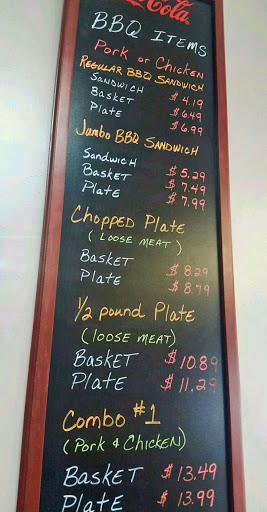 Cola
BBQ ITEMS
Pork or Chicken
Regular BBQ Sandwich
Sandwich $ 4.19
Basket $ 6.49
Plate $ 6.99
Jumbo BBQ Sandwich
Sandwich $ 5.29
Basket $ 7.49
Plate $ 7.99
Chopped Plate
( Loose Meat )
Basket $ 8.29
Plate $ 8.79
1/2 pound Plate
(loose meat)
Basket $ 10.89
Plate $ 11.29
Combo #1
( Pork & Chicken)
Basket $ 13.49
Plate $ 13.99